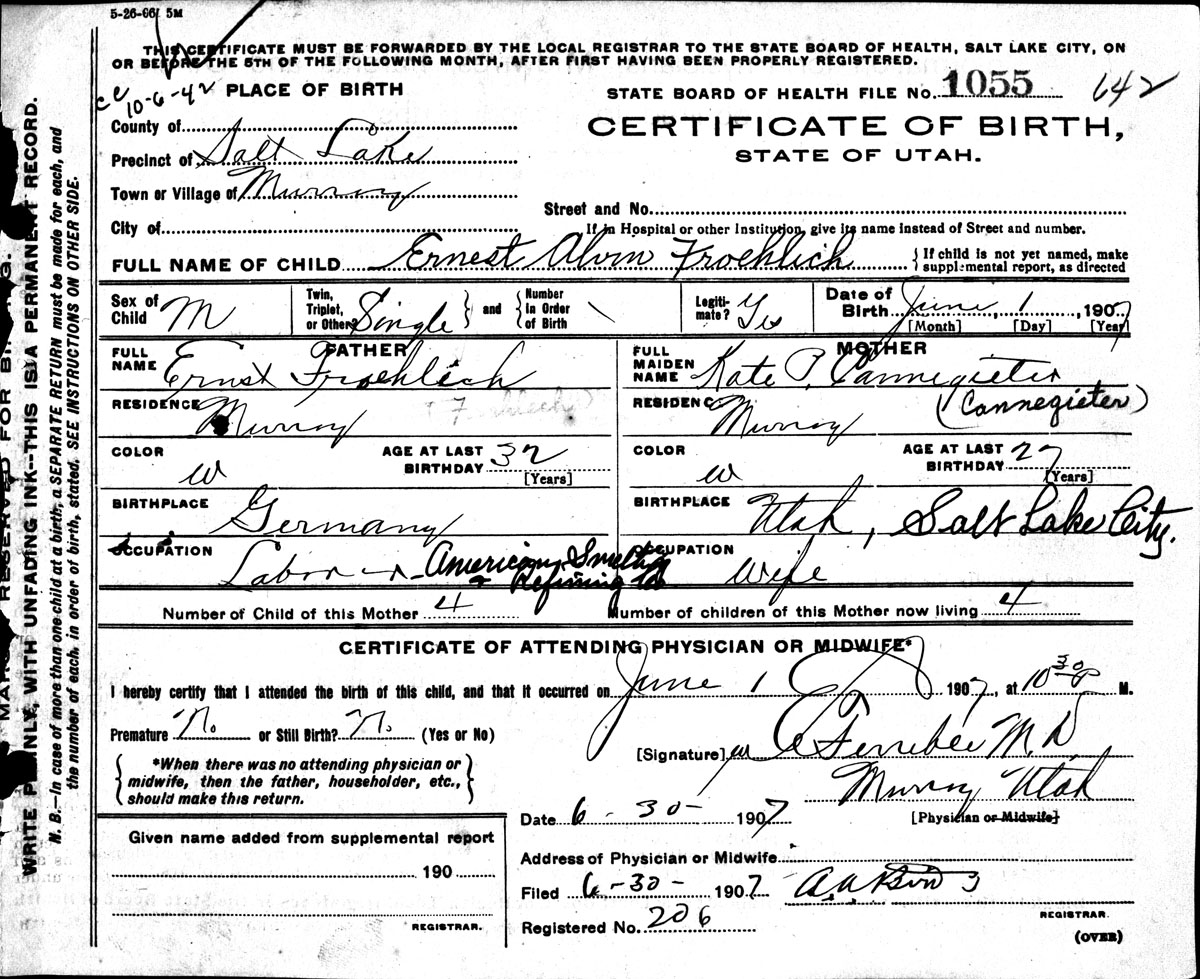 5-26-06 5M
THIS CERTIFICATE MUST BE FORWARDED BY THE LOCAL REGISTRAR TO THE STATE BOARD OF HEALTH, SALT LAKE CITY, ON
OR BEFORE THE 5TH OF THE FOLLOWING MONTH, AFTER FIRST HAVING BEEN PROPERLY REGISTERED.
cc 10-6-42 PLACE OF BIRTH
STATE BOARD OF HEALTH FILE No. 1055 642
County of
CERTIFICATE OF BIRTH,
Precinct of Salt Lake
STATE OF UTAH.
Town or Village of Murray
Street and No.
City of
If in Hospital or other Institution, give its name instead of Street and number.
FULL NAME OF CHILD Ernest Alvin Froehlich { If child is not yet named, make supplemental report, as directed
Sex of Child M Twin, Triplet, or Other? Single } and { Number in Order of Birth \ Legitimate? Yes Date of Birth June, 1, 1907
[Month] [Day] [Year]
FATHER
MOTHER
FULL NAME Ernst Froehlich
FULL MAIDEN NAME Kate P. Cannegieter
(Cannegieter)
RESIDENCE Murray
RESIDENCE Murray
COLOR W AGE AT LAST BIRTHDAY 32 [Years]
COLOR W AGE AT LAST BIRTHDAY 27 [Years]
BIRTHPLACE Germany
BIRTHPLACE Utah, Salt Lake City.
OCCUPATION Labor American Smelting & Refining Co
OCCUPATION Wife
Number of Child of this Mother 4 Number of children of this Mother now living 4
CERTIFICATE OF ATTENDING PHYSICIAN OR MIDWIFE*
I hereby certify that I attended the birth of this child, and that it occurred on June 1 1907, at 10 30 P M.
Premature No or Still Birth? No (Yes or No)
[Signature] Ferrebee M.D.
*When there was no attending physician or
midwife, then the father, householder, etc.,
should make this return.
Murray Utah
[Physician or Midwife]
Date 6-30-1907
Given name added from supplemental report
190
REGISTRAR.
Address of Physician or Midwife
Filed 6-30-1907
REGISTRAR.
Registered No. 206
(OVER)
WRITE PLAINLY, WITH UNFADING INK--THIS IS A PERMANENT RECORD.
N. B.—In case of more than one child at a birth, a SEPARATE RETURN must be made for each, and
the number of each, in order of birth, stated. SEE INSTRUCTIONS ON OTHER SIDE.